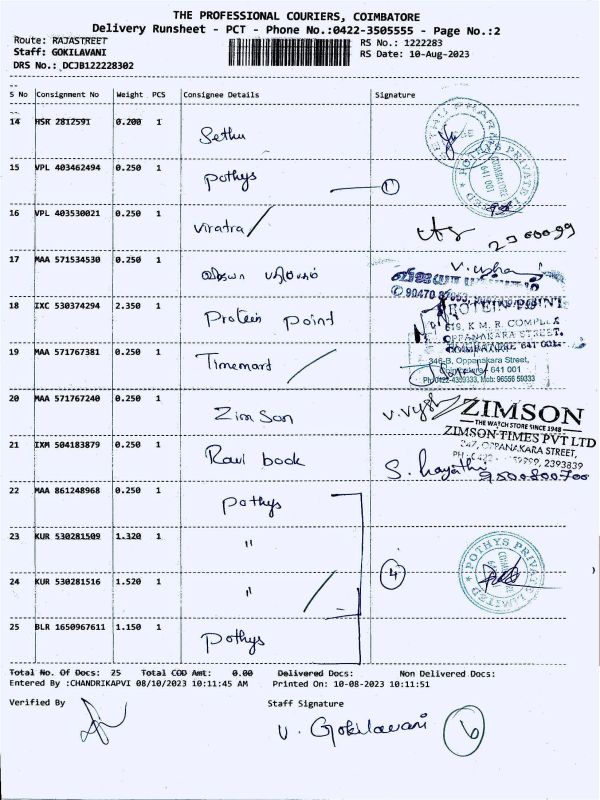 THE PROFESSIONAL COURIERS, COIMBATORE
Delivery Runsheet - PCT - Phone No.:0422-3505555 - Page No.:2
Route: RAJASTREET
RS No.: 1222283
Staff: GOKILAVANI
RS Date: 10-Aug-2023
DRS No.: DCJB122228302
S No Consignment No Weight PCS Consignee Details Signature
14 HSR 2812591 0.200 1 Sethu
15 VPL 403462494 0.250 1 Pothys 1
POTHYS PRIVATE
COIMBATORE
641 001
16 VPL 403530021 0.250 1 Viratra
17 MAA 571534530 0.250 1
V. usha
18 IXC 530374294 2.350 1 Protein point
PROTEIN POINT
619, K M. R. COMPLEX
OPPANAKARA STREET,
COIMBATORE 641 001.
19 MAA 571767381 0.250 1 Timemart
346-B, Oppanakara Street,
Coimbatore 641 001
Ph:0422-4399333, Mob: 96556 59333
20 MAA 571767240 0.250 1 Zim Son
ZIMSON
THE WATCH STORE SINCE 1948
ZIMSON TIMES PVT LTD
347, OPPANAKARA STREET,
21 IXM 504183879 0.250 1 Ravi book
9500800700
22 MAA 861248968 0.250 1 Pothys
23 KUR 530281509 1.320 1 "
24 KUR 530281516 1.520 1 " 4
POTHYS PRIVATE LIMITED
25 BLR 1650967611 1.150 1 Pothys
Total No. Of Docs: 25 Total COD Amt: 0.00 Delivered Docs: Non Delivered Docs:
Entered By :CHANDRIKAPVI 08/10/2023 10:11:45 AM Printed On: 10-08-2023 10:11:51
Verified By Staff Signature
V. Gokilavani 6